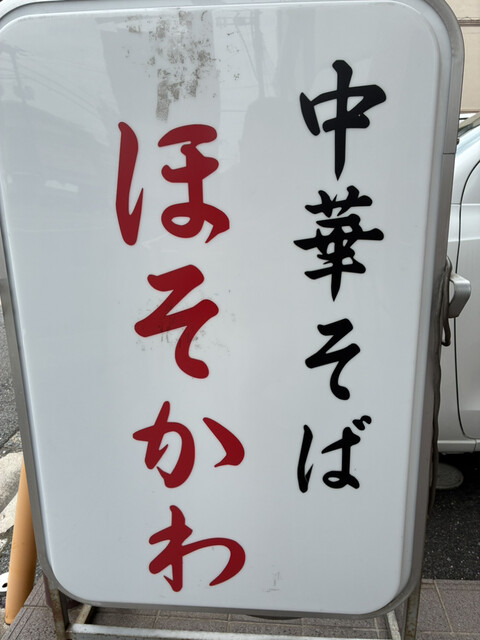 中華そば
ほそかわ